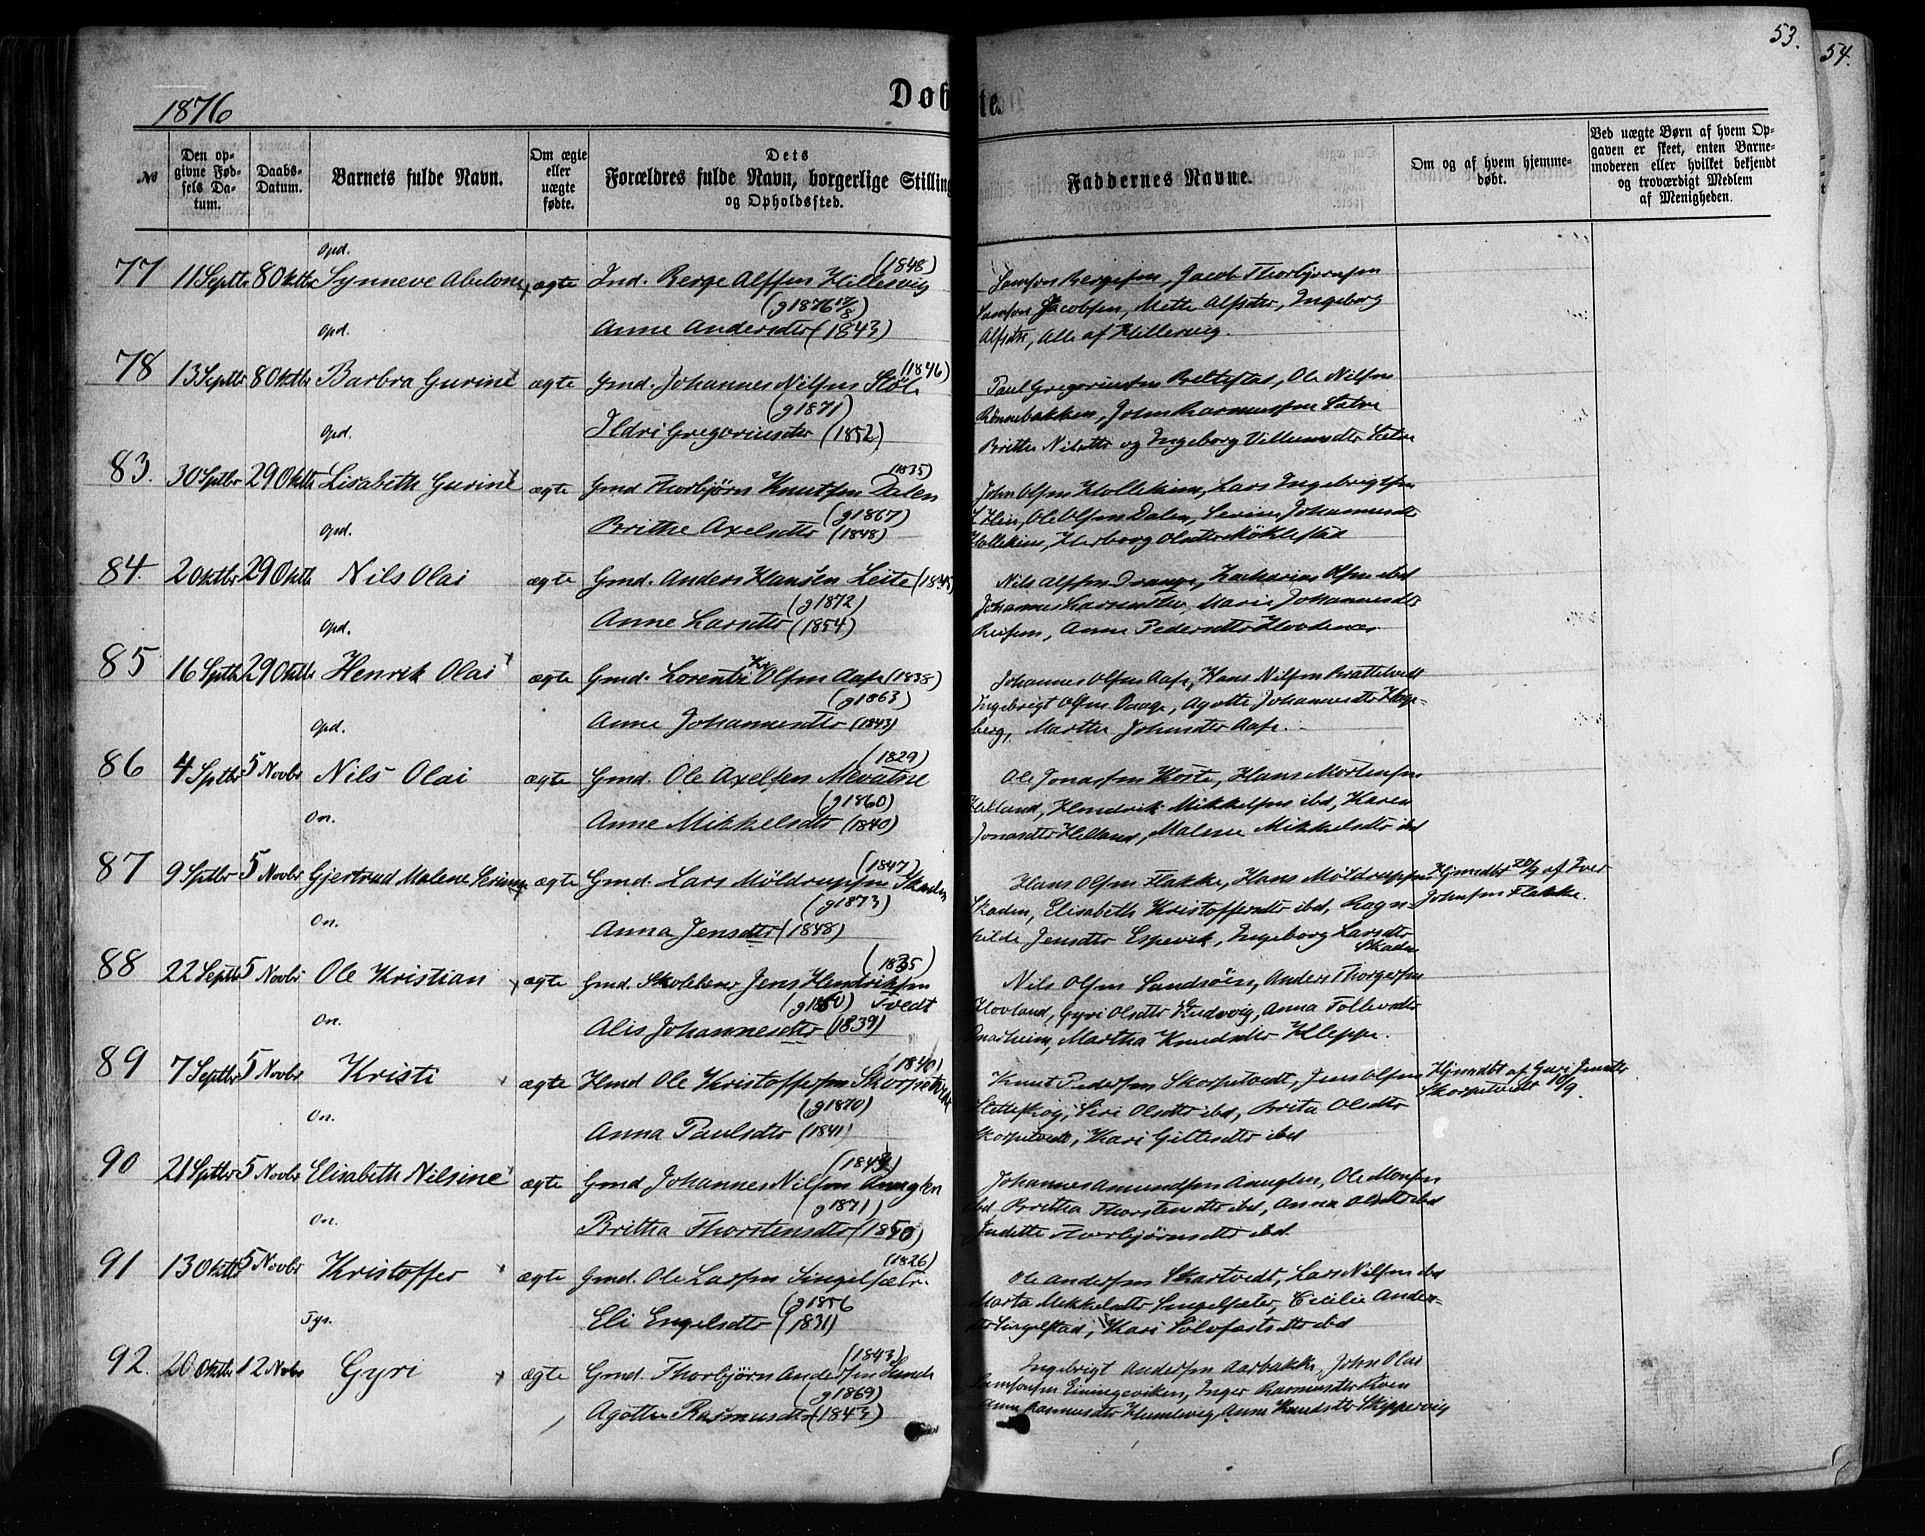 53.
54.
1876
Døbte.
№
Den opgivne Fødsels Datum.
Daabs-Datum.
Barnets fulde Navn.
Om ægte eller uægte fødte.
Dets Forældres fulde Navn, borgerlige Stilling og Opholdssted.
Faddernes Navne.
Om og af hvem hjemmedøbt.
Ved uægte Børn af hvem Opgaven er skeet, enten Barnemoderen eller hvilket bekjendt og troværdigt Medlem af Menigheden.
Opd.
77 11 Septbr 8 Oktbr Synneve Abelone ægte Ind. Berge Alfsen Hillesvig (1848)
(g 1876 17/8)
Anne Andersdtr (1843)
Samson Bergesen, Jacob Thorbjørnsen
Samson Jacobsen, Mette Alfsdtr, Ingeborg
Alfsdtr, Alle af Hillesvig.
Opd.
78 13 Septbr 8 Oktbr Barbra Gurine ægte Gmd. Johannes Nilsen Støle (1846)
(g 1871)
Ildri Gregoriusdtr (1852)
Paul Gregoriussen Ole Nilsen
Rønnebakken, John Rasmussen Sætre
Brithe Nilsdtr og Ingeborg Villumsdtr Sætre
Opd.
83. 30 Sptbr 29 Oktbr Lisabeth Gurine ægte Gmd Thorbjørn Knutsen Dalen (1835)
(g 1867)
Brithe Axelsdtr (1848)
John Olsen Hollekim, Lars Ingebrigtsen
Ole Olsen Dalen, Johannesdtr
Hollekim, Herborg Olsdtr Møklestad
Opd.
84. 2 Oktbr 29 Oktbr Nils Olai ægte Gmd. Anders Hansen Leite
(g 1872)
Anne Larsdtr (1854)
Nils Alfsen Drange, Zacharias Olsen ibd
Johannes Marie Johannesdtr
Anne Pedersdtr
Opd.
85 16 Sptbr 29 Oktbr Henrik Olai ægte Gmd. Lorents Olsen Aase (1838)
(g 1863)
Anne Johannesdtr (1843)
Johannes Olsen Aase, Hans Nilsen Brattetvedt
Ingebrigt Olsen Agotte Johannesdtr Hage-
berg, Marthe Johnsdtr Aase.
Opd.
86 4 Sptbr 5 Novbr Nils Olai ægte Gmd. Ole Axelsen Mevatne (1829)
(g 1860)
Anne Mikkelsdtr (1840)
Ole Jonassen Hans Mortensen
Helland, Hendrik Mikkelsen ibd, Karen
Jonasdtr Helland, Malene Mikkelsdtr ibd
On.
87 9 Sptbr 5 Novbr Gjertrud Malene ægte Gmd. Lars Møldrupsen Skaden (1847)
(g 1873)
Anna Jensdtr (1848)
Hans Olsen Flakke, Hans Møldrupsen
Skaden, Elisabeth Kristoffersdtr ibd, Ragn-
hilde Jensdtr Espevik, Ingeborg Larsdtr
Skaden
Hjmdbt 20/9 af Iver
Johnsen Flakke.
On.
88 22 Septbr 5 Novbr Ole Kristian ægte Gmd. Skolelærer Jens Hendriksen Tvedt (1835)
(g 1860)
Alis Johannesdtr (1839)
Nils Olsen Sundsøen, Anders Thorgersen
Hovland, Gyri Olsdtr Anna Tollevsdtr
Martha Knudsdtr Kleppe.
On.
89 7 Septbr 5 Novbr Kristi ægte Hmd Ole Kristoffersen Skorpetvedt (1840)
(g 1870)
Anna Paulsdtr (1841)
Knut Pedersen Skorpetvedt, Jens Olsen
Sletteskog, Siri Olsdtr ibd, Brita Olsdtr
Skorpetvedt, Kari Gittesdtr ibd
Hjmdbt af Guri Jensdtr
Skorpetvedt 10/9.
On.
90 21 Sptbr 5 Novbr Elisabeth Nilsine ægte Gmd Johannes Nilsen Aauglen
(g 1871)
Britha Thorstensdtr (1850)
Johannes Amundsen Aauglen, Ole Monsen
ibd, Britha Thorstensdtr ibd, Anna Olsdtr ibd
Judithe Thorbjørnsdtr ibd.
On.
91 13 Oktbr 5 Novbr Kristoffer ægte Gmd. Ole Larsen Singelsæter (1826)
(g 1856
Eli Engelsdtr (1831)
Ole Andersen Skartvedt, Lars Nilsen ibd
Marta Mikkelsdtr Singelsæter, Cecilie Anders-
dtr Singelstad, Kari Solofestsdtr ibd
Tys.
92. 20 Oktbr 12 Nobr Gyri ægte Gmd. Thorbjørn Andersen Sunde (1843)
(g 1869)
Agothe Rasmusdtr (1843)
Ingebrigt Andersen Aarbakke, John Olai
Samsonsen Einingeviken, Inger Rasmusdtr
Anne Rasmusdtr Humlevig, Anne Knudsdtr Skippervig